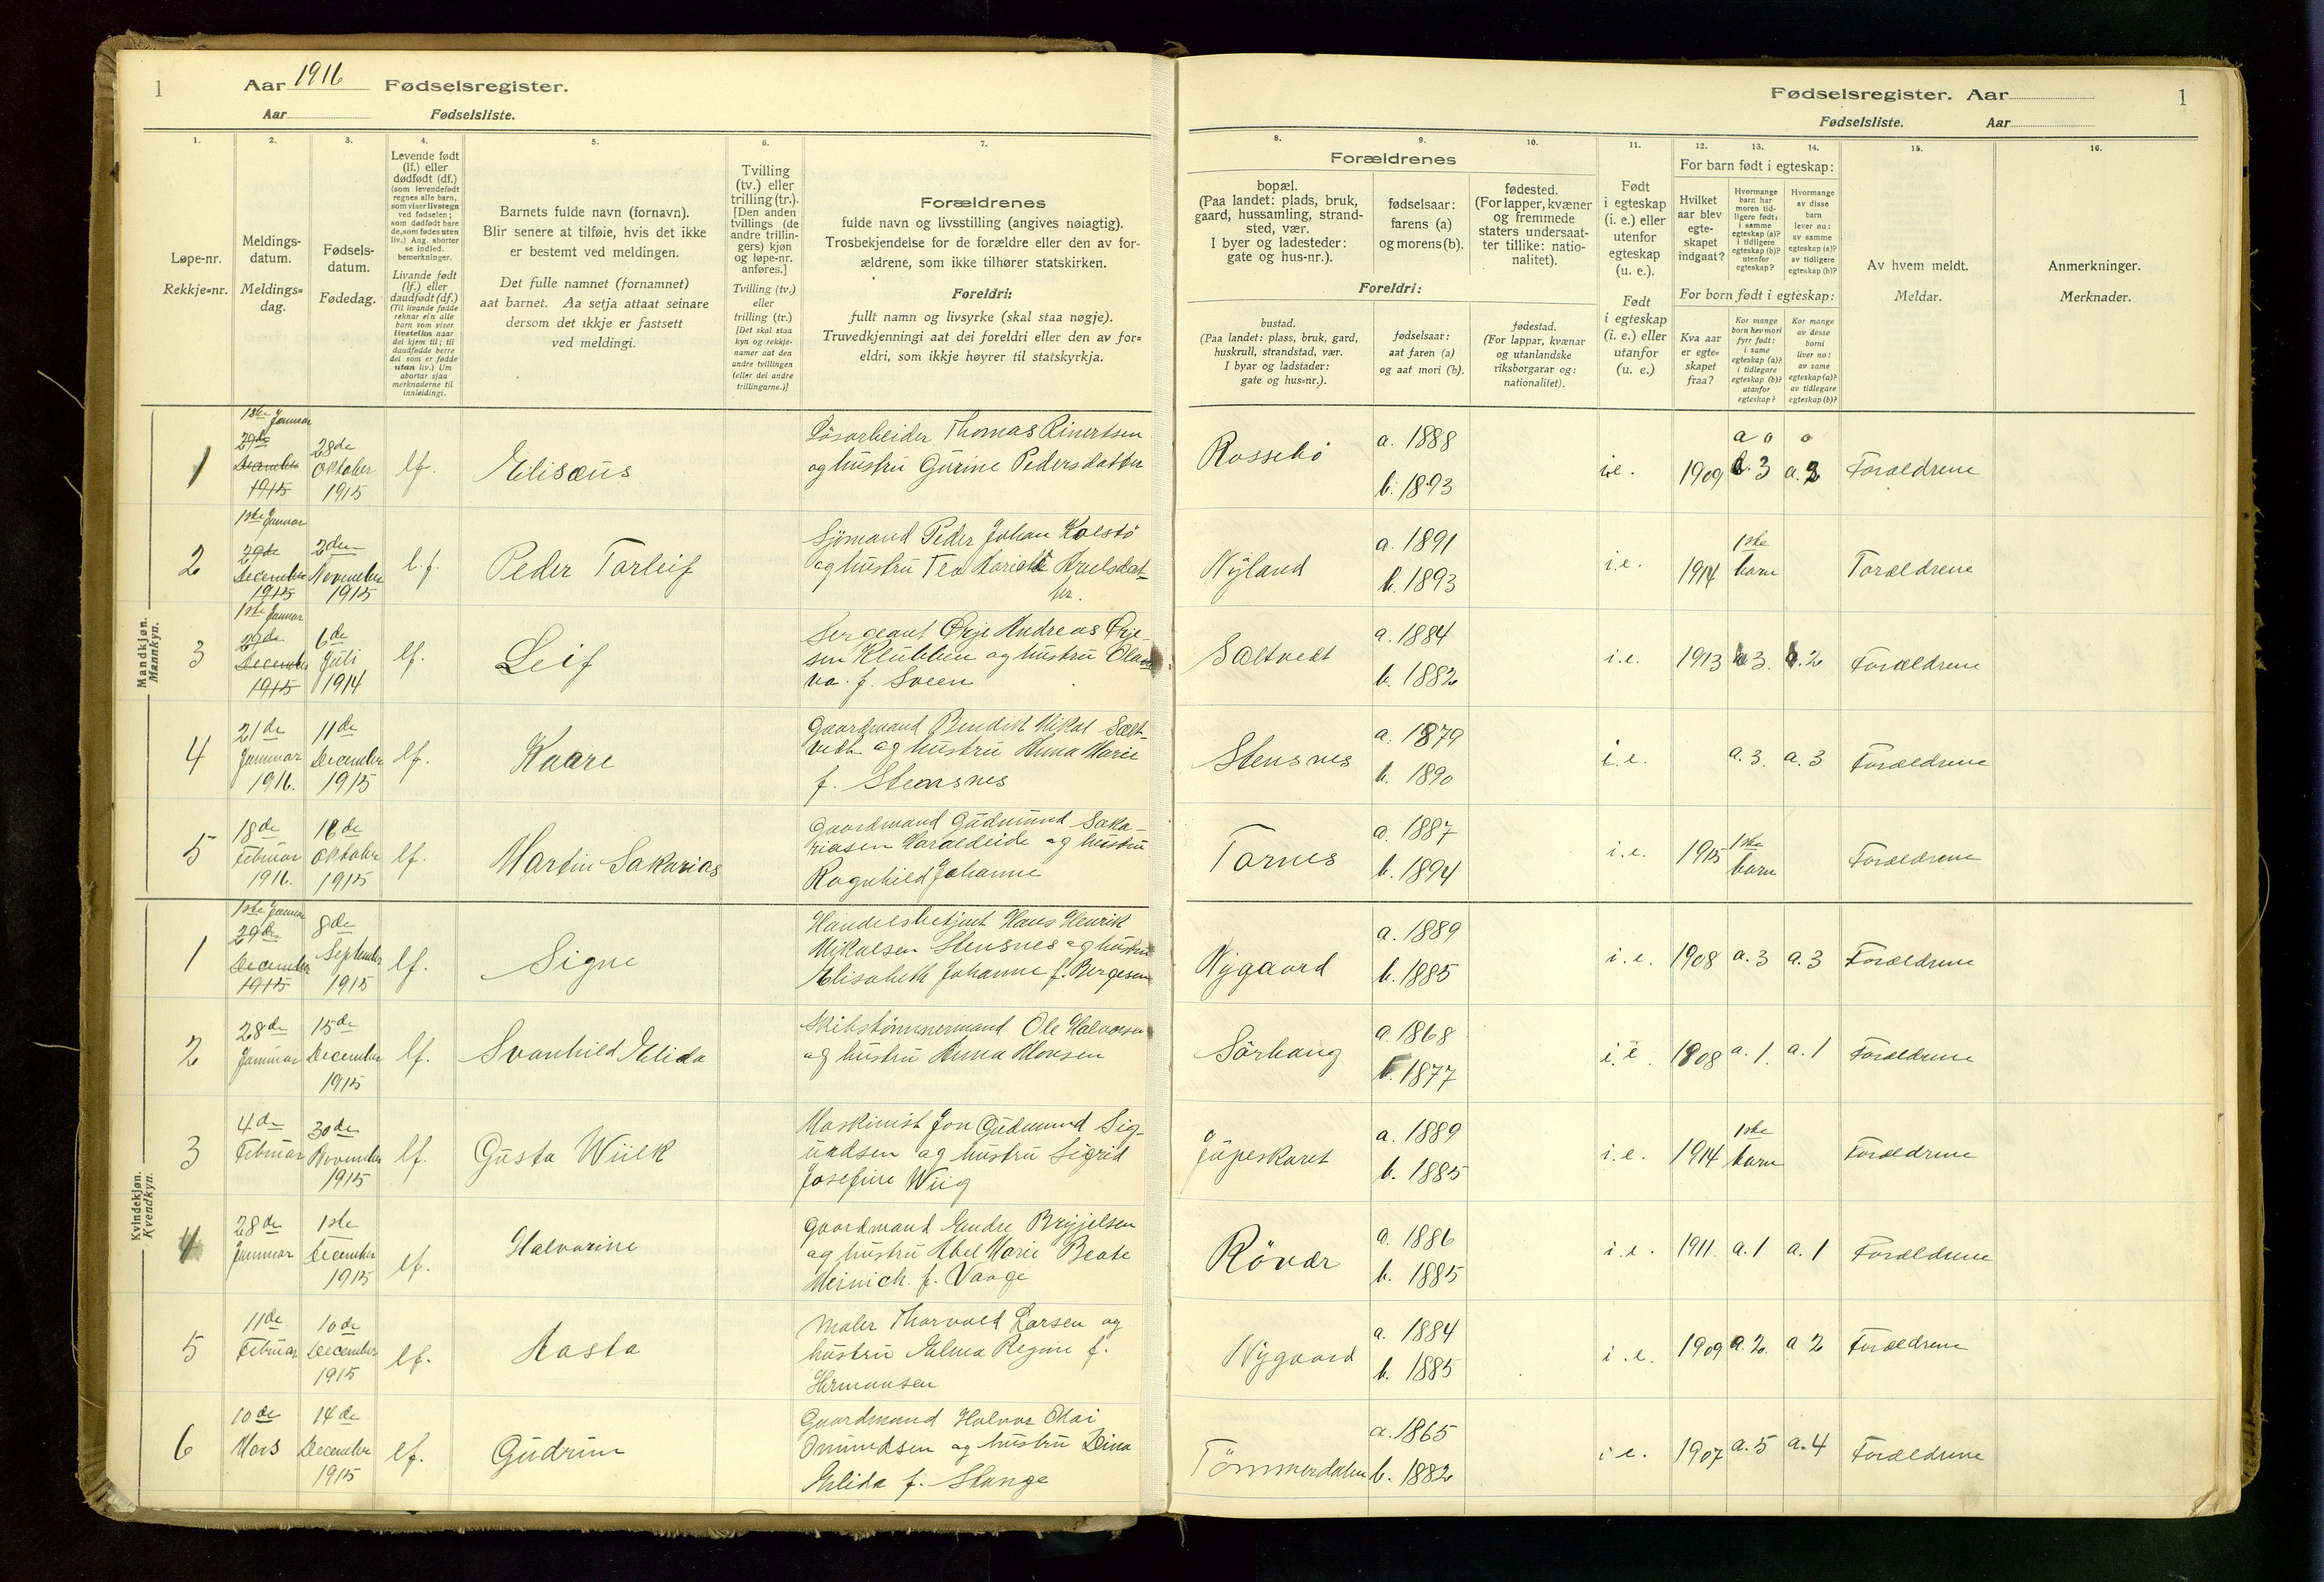 1
Aar 1916 Fødselsregister.
Aar Fødselsliste.
Fødselsregister. Aar
1
Fødselsliste. Aar
1. 2. 3. 4. 5. 6. 7.
Løpe-nr.
Rekkje=nr.
Meldings-
datum.
Meldings=
dag.
Fødsels-
datum.
Fødedag.
Levende født
(lf.) eller
dødfødt (df.)
(som levendefødt
regnes alle barn,
som viser livstegn
ved fødselen;
som dødfødt bare
de, som fødes uten
liv.) Ang. aborter
se indled.
bemerkninger.
Livande født
(lf.) eller
daudfødt (df.)
(Til livande fødde
reknar ein alle
barn som viser
livsteikn naar
dei kjem til; til
daudfødde berre
dei som er fødde
utan liv.) Um
abortar sjaa
merknaderne til
innleidingi.
Barnets fulde navn (fornavn).
Blir senere at tilføie, hvis det ikke
er bestemt ved meldingen.
Det fulle namnet (fornamnet)
aat barnet. Aa setja attaat seinare
dersom det ikkje er fastsett
ved meldingi.
Tvilling
(tv.) eller
trilling (tr.).
[Den anden
tvillings (de
andre trillin-
gers) kjøn
og løpe-nr.
anføres.]
Tvilling (tv.)
eller
trilling (tr.)
[Det skal staa
kyn og rekkje-
numer aat den
andre tvillingen
(eller dei andre
trillingarne.)]
Forældrenes
fulde navn og livsstilling (angives nøiagtig).
Trosbekjendelse for de forældre eller den av for-
ældrene, som ikke tilhører statskirken.
Foreldri:
fullt namn og livsyrke (skal staa nøgje).
Truvedkjenningi aat dei foreldri eller den av for=
eldri, som ikkje høyrer til statskyrkja.
8. 9. 10. 11. 12. 13. 14. 15. 16.
Forældrenes
bopæl.
(Paa landet: plads, bruk,
gaard, hussamling, strand-
sted, vær.
I byer og ladesteder:
gate og hus-nr.).
fødselsaar:
farens (a)
og morens (b).
fødested.
(For lapper, kvæner
og fremmede
staters undersaat-
ter tillike: natio-
nalitet).
Foreldri:
bustad.
(Paa landet: plass, bruk, gard,
huskrull, strandstad, vær.
I byar og ladstader:
gate og hus=nr.).
fødselsaar:
aat faren (a)
og aat mori (b).
fødestad.
(For lappar, kvænar
og utanlandske
riksborgarar og:
nationalitet).
Født
i egteskap
(i. e.) eller
utenfor
egteskap
(u. e.).
Født
i egteskap
(i. e.) eller
utanfor
(u. e.)
For barn født i egteskap:
Hvilket
aar blev
egte-
skapet
indgaat?
Hvormange
barn har
moren tid-
ligere født:
i samme
egteskap (a)?
i tidligere
egteskap (b)?
utenfor
egteskap?
Hvormange
av disse
barn
lever nu:
av samme
egteskap (a)?
av tidligere
egteskap (b)?
For born født i egteskap:
Kva aar
er egte=
skapet
fraa?
Kor mange
born hev mori
fyrr født:
i same
egteskap (a)?
i tidlegare
egteskap (b)?
utanfor
egteskap?
Kor mange
av desse
borni
liver no:
av same
egteskap (a)?
av tidlegare
egteskap (b)?
Av hvem meldt.
Meldar.
Anmerkninger.
Merknader.
Mandkjøn.
Mannkyn.
1ste Januar
29de
December
1915
1
28de
Oktober
1915
lf.
Elisæus
Løsarbeider Thomas Rinertsen
og hustru Gurine Pedersdatter
Rossebö
a. 1888
b. 1893
i.e. 1909
a 0 0
b. 3 a. 3
Forældrene
1ste Januar
29de
December
1915
2
2den
November
1915
l.f.
Peder Torleif
Sjömand Peder Johan Kolstö
og hustru Tea
ter.
Nÿland
a. 1891
b. 1893
i.e. 1914
1ste
barn
Forældrene
1ste Januar
29de
December
1915
3
6de
Juli
1914
lf.
Leif
Sergeant Ørje Andreas Ørje-
sen Klubben og hustru
f. Sveen
Sæltvedt
a. 1884
b. 1882
i.e. 1913 3. 2
Forældrene
4
21de
Januar
1916.
11de
December
1915
lf.
Kaare
Gaardmand Bendik Mikal Sælt-
vedt og hustru Anna Marie
f. Stensnes
Stensnes
a. 1879
b. 1890
i.e. a. 3. a. 3
Forældrene
5
18de
Februar
1916.
16de
Oktober
1915
lf.
Martin Sakarias
Gaardmand Gudmund Saka-
riasen Haraldeide og hustru
Ragnhild Johanne
Tornes
a. 1887
b. 1894
i.e. 1915
1ste
barn
Forældrene
Kvindekjøn.
Kvendkyn.
1ste Januar
29de
December
1915
1
8de
September
1915
lf.
Signe
Handelsbetjent Hans Henrik
Mikalsen Stensnes og hustru
Elisabeth Johanne f. Bergesen
Nygaard
a. 1889
b. 1885
i.e. 1908 a. 3 a. 3
Forældrene
2
28de
Januar
15de
December
1915
lf.
Svanhild Elida
Skibstømmermand Ole Halvorsen
og hustru Anna Monsen
Sörhaug
a. 1868
b. 1877
i.e. 1908 a. 1. a. 1
Forældrene
3
4de
Februar
30de
November
1915
lf.
Gusta Wiik
Maskinist Jon Gudmund Sig-
urdsen og hustru Sigrid
Josefine Wiig
Jupeskaret
a. 1889
b. 1885
i.e. 1914
1ste
barn
Forældrene
4
28de
Januar
1ste
December
1915
lf.
Halvorine
Gaardmand Endre Brÿjelsen
og hustru Abel Marie Beate
Meinich f. Vaage
Rövær
a. 1886
b. 1885
i.e. 1911. a. 1 a. 1
Forældrene
5
11de
Februar
10de
December
1915
lf.
Aasta
Maler Thorvald Larsen og
hustru Elma Regine f.
Hermansen
Nygaard
a. 1884
b. 1885
i.e. 1909 a. 2. a 2
Forældrene
6
10de
Mars
14de
December
1915
lf.
Gudrun
Gaardmand Halvor Olai
Omundsen og hustru Dina
Elida f. Stange
Tömmerdalen
a. 1865
b. 1882
i.e. 1907 a. 5 a. 4
Forældrene